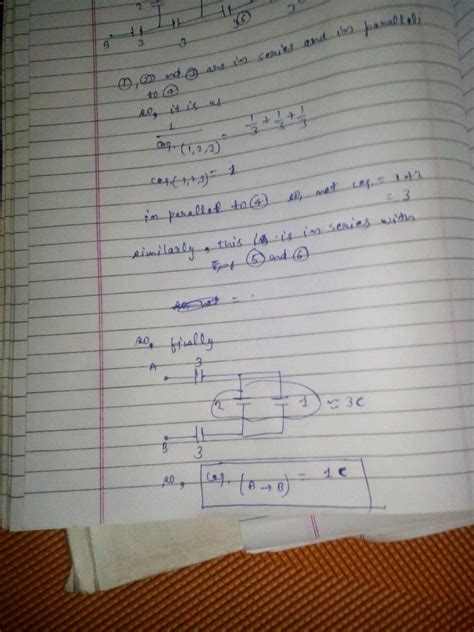 2
B 3 3
①, ② and ③ are in series and in parallel
to ④
so, it is as
1/Ceq.(1,2,3) = 1/3 + 1/3 + 1/3
Ceq.(1,2,3) = 1
in parallel to ④ so, net Ceq. = 1+2
= 3
similarly, this is in series with
⑤ and ⑥
= .
so, finally
A 3
2 1 ≈ 3C
B 3
so, Ceq. (A → B) = 1C